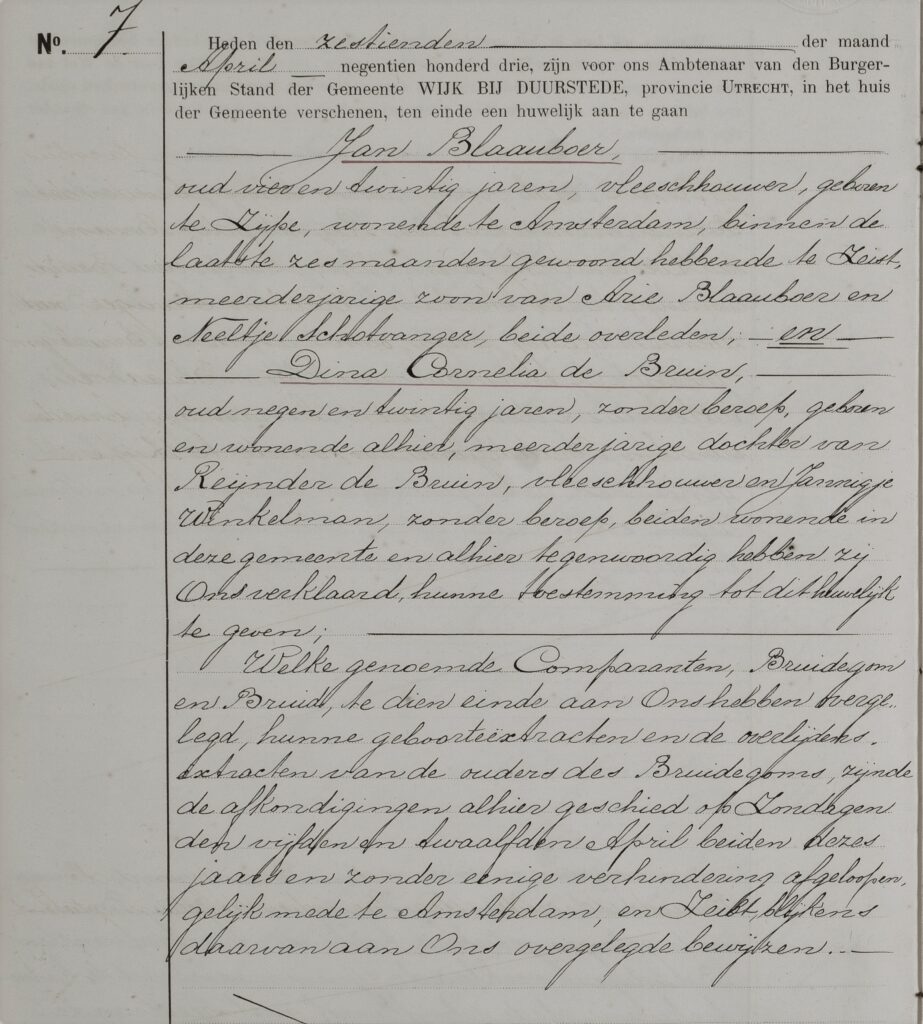 No. 7
Heden den zestienden der maand
April negentien honderd drie, zijn voor ons Ambtenaar van den Burger-
lijken Stand der Gemeente WIJK BIJ DUURSTEDE, provincie UTRECHT, in het huis
der Gemeente verschenen, ten einde een huwelijk aan te gaan
Jan Blaauboer,
oud vier en twintig jaren, vleeschhouwer, geboren
te Zijpe, wonende te Amsterdam, binnen de
laatste zes maanden gewoond hebbende te Zeist,
meerderjarige zoon van Arie Blaauboer en
Neeltje Schotvanger, beide overleden; en
Dina Cornelia de Bruin,
oud negen en twintig jaren, zonder beroep, geboren
en wonende alhier, meerderjarige dochter van
Reijnder de Bruin, vleeschhouwer en Jannigje
Winkelman, zonder beroep, beiden wonende in
deze gemeente en alhier tegenwoordig hebben zij
Ons verklaard, hunne toestemming tot dit huwelijk
te geven;
Welke genoemde Comparanten, Bruidegom
en Bruid, te dien einde aan Ons hebben overge-
legd, hunne geboorteëxtracten en de overlijdens-
extracten van de ouders des Bruidegoms, zijnde
de afkondigingen alhier geschied op Zondagen
den vijfden en twaalfden April beiden dezes
jaars en zonder eenige verhindering afgeloopen,
gelijk mede te Amsterdam, en Zeist, blijkens
daarvan aan Ons overgelegde bewijzen.